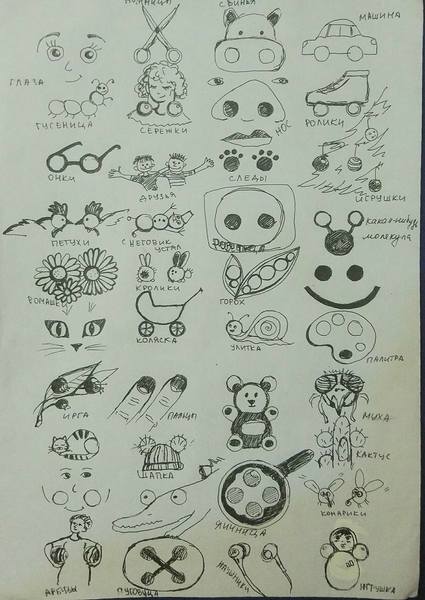 НОЖНИЦЫ
СВИНЬЯ
МАШИНА
ГЛАЗА
ГУСЕНИЦА
СЕРЁЖКИ
НОС
РОЛИКИ
ОЧКИ
ДРУЗЬЯ
СЛЕДЫ
ИГРУШКИ
ПЕТУХИ
СНЕГОВИК
УСТАЛ
КАКАЯ-НИБУДЬ
МОЛЕКУЛА
РОМАШКИ
КРОЛИКИ
ГОРОХ
КОЛЯСКА
УЛИТКА
ПАЛИТРА
ИРГА
ПАЛЬЦЫ
МУХА
КАКТУС
ШАПКА
ЯИЧНИЦА
КОМАРИКИ
АРБУЗЫ
ПУГОВИЦА
НАУШНИКИ
ИГРУШКА